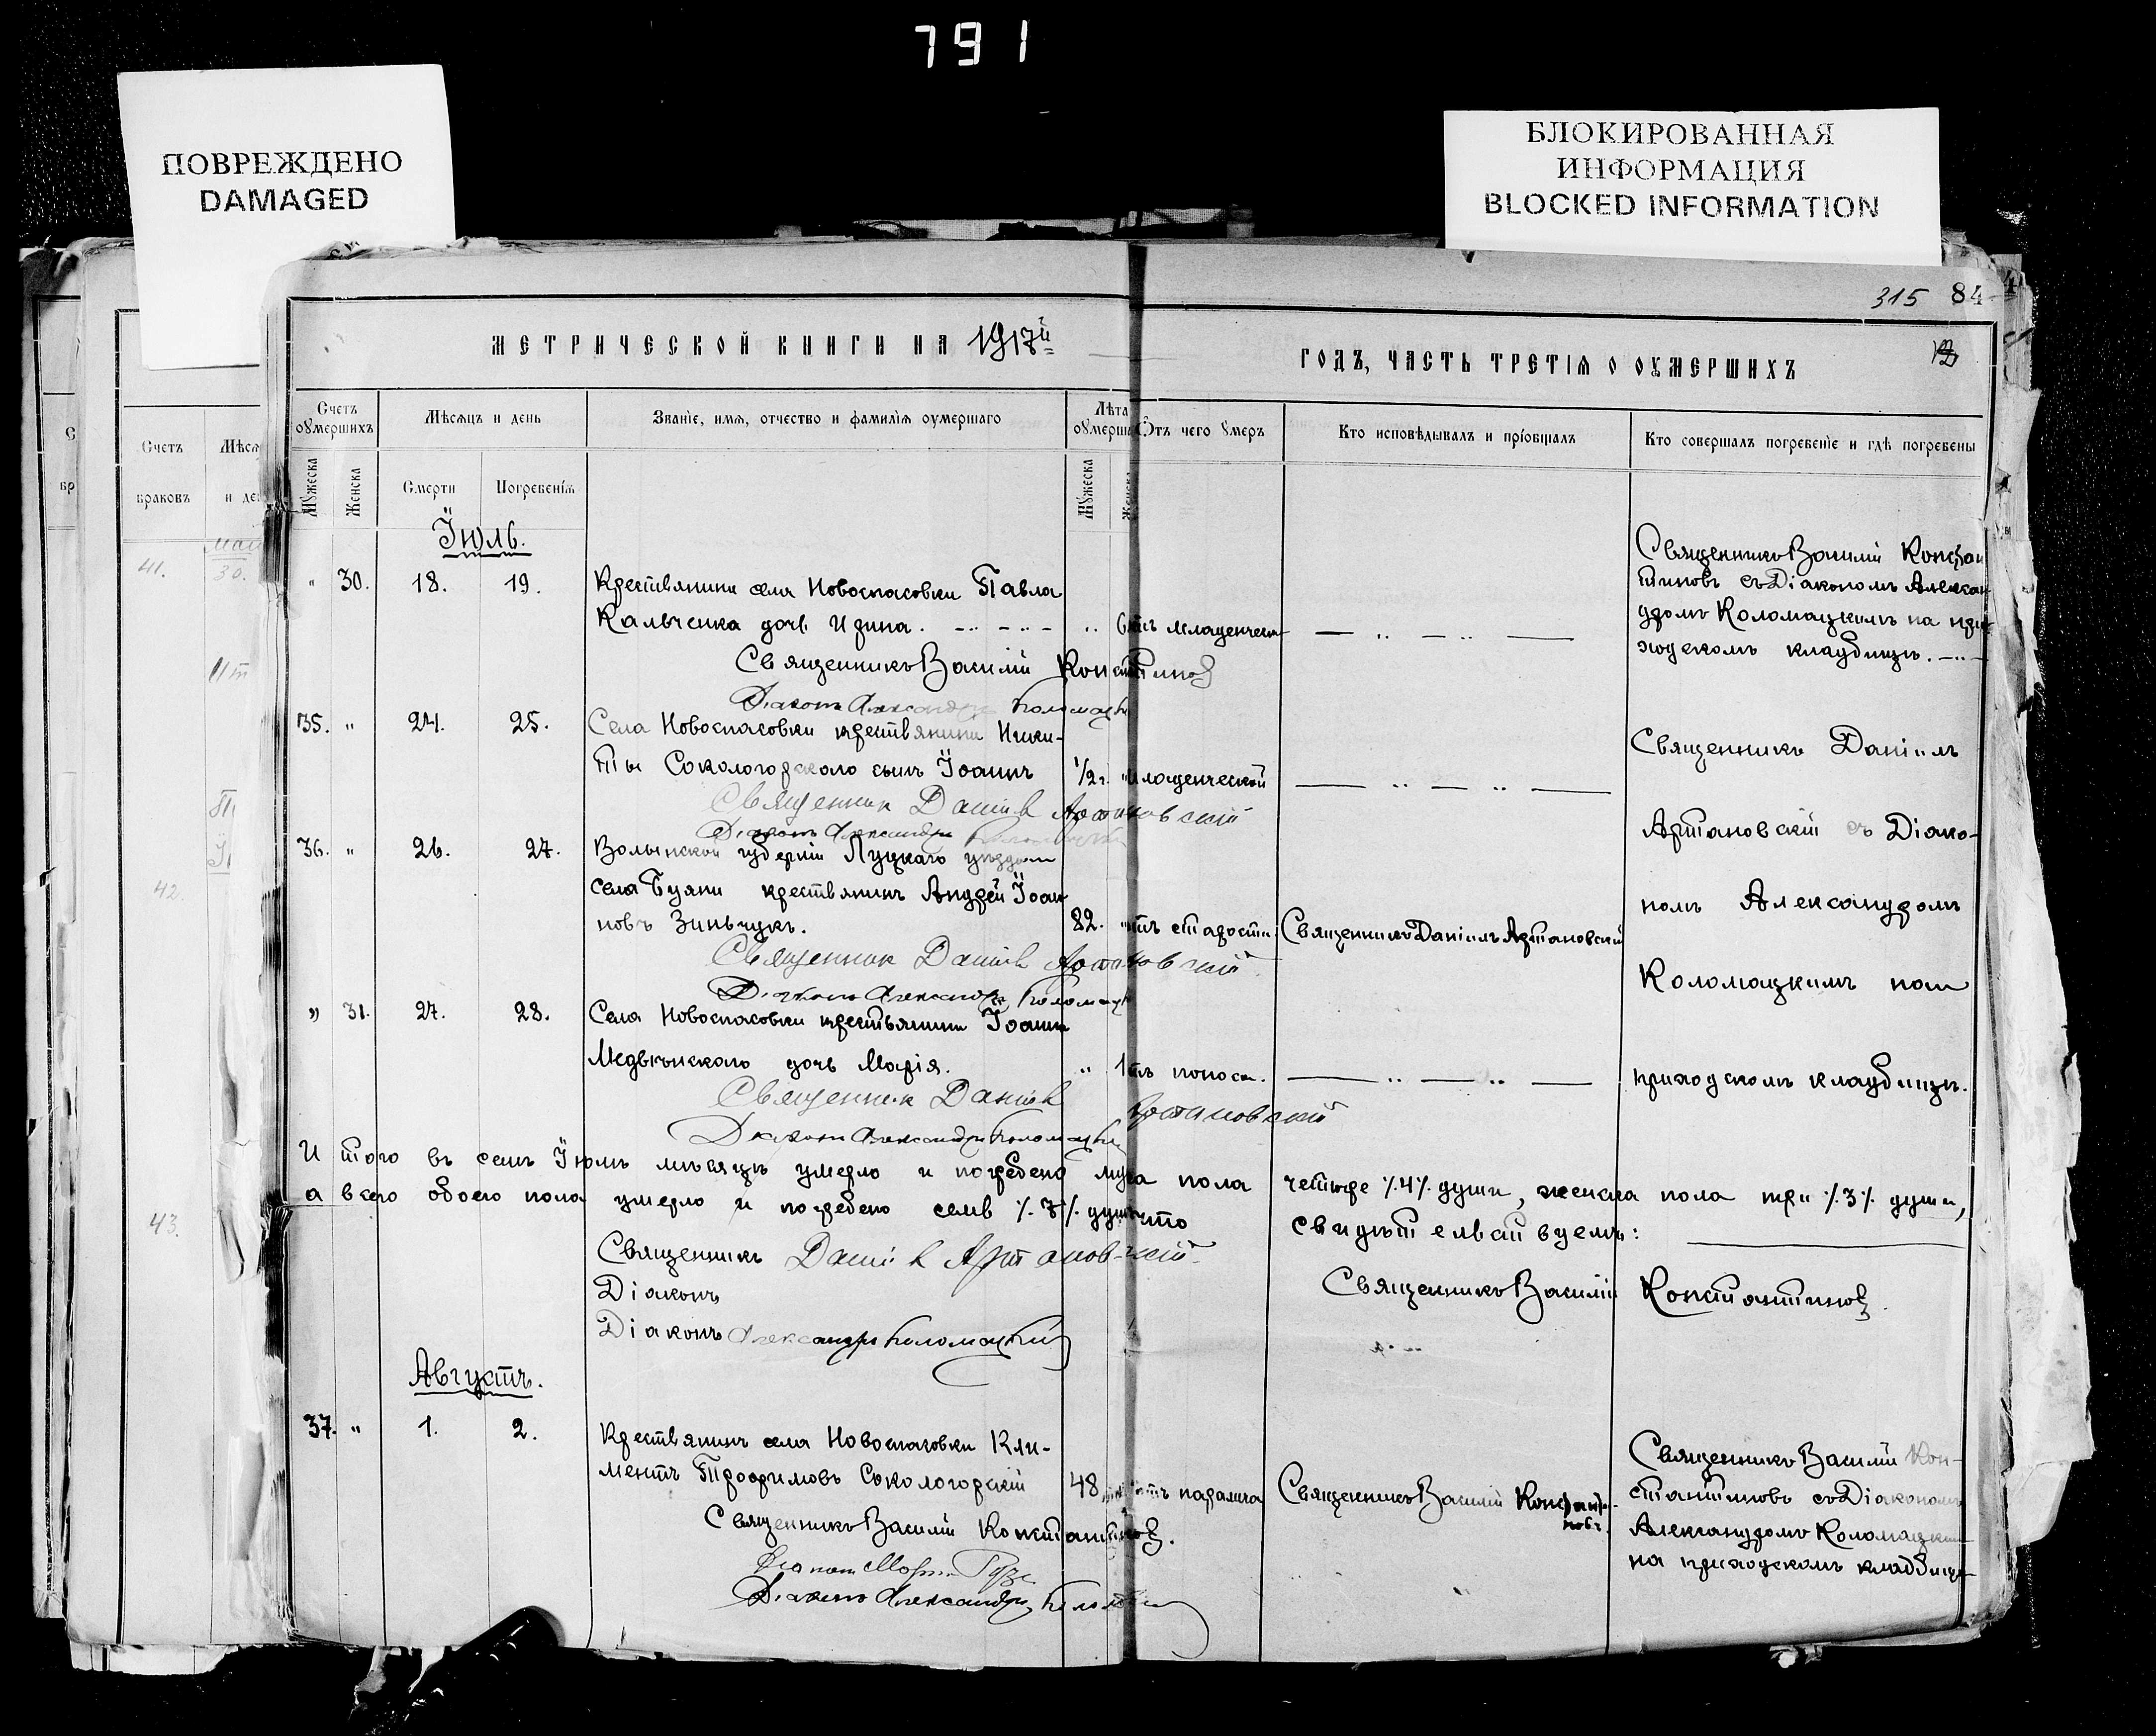 791
ПОВРЕЖДЕНО
DAMAGED
БЛОКИРОВАННАЯ
ИНФОРМАЦИЯ
BLOCKED INFORMATION
315 84
МЕТРИЧЕСКОЙ КНИГИ НА 1917й
ГОДЪ, ЧАСТЬ ТРЕТІЯ О ОУМЕРШИХЪ
Счетъ оумершихъ
Мѣсяцъ и день
Званіе, имя, отчество и фамилія оумершаго
Лѣта
Отъ чего умеръ
Кто исповѣдывалъ и пріобщалъ
Кто совершалъ погребеніе и гдѣ погребены
Мужеска
Женска
Смерти
Погребенія
Мужеска
Женска
Счетъ
браковъ
41.
30.
42.
43.
Іюль.
" 30. 18. 19. Крестьянина села Новоспасовки Павла
Кальченка дочь Ирина.
Священникъ Василій
Діаконъ Александръ
Священникъ Василій Констан
тиновъ съ Діакономъ Алексан
дромъ Коломацкимъ на при
ходскомъ кладбищѣ.
35. " 24. 25. Села Новоспасовки крестьянина Ники-
ты Сокологорскаго сынъ Іоаннъ 1/2 г. " младенческой
Священник Даніил Артановскій
Діаконъ Александръ
36. " 26. 27. Волынской губерніи Луцкаго уѣзда
села Буяни крестьянинъ Андрей Іоан
новъ Зиньчукъ. 82. " отъ старости Священникъ Даніилъ Артановскій
Священник Даніил Артановскій
Діаконъ Александръ
" 31. 27. 28. Села Новоспасовки крестьянина Іоанна
дочь Марія. " 1 отъ поноса.
Священник Даніил Артановскій
Діаконъ Александръ Коломацкій
Священникъ Даніилъ
Артановскій съ Діако-
номъ Александромъ
Коломацкимъ на
приходскомъ кладбищѣ.
Итого въ семъ Іюлѣ мѣсяцѣ умерло и погребено муж. пола четыре %4% души, женска пола три %3% души,
а всего обоего пола умерло и погребено семь %7% душъ что свидѣтельствуемъ:
Священникъ Даніил Артановскій
Священникъ Василій Константиновъ.
Діаконъ
Діаконъ Александръ Коломацкій
Августъ.
37. " 1. 2. Крестьянинъ села Новоспасовки Кли-
ментъ Трофимовъ Сокологорскій 48 отъ паралича Священникъ Василій Константи-
новъ.
Священникъ Василій Константиновъ.
Діаконъ Александръ
Священникъ Василій Кон-
стантиновъ съ Діакономъ
Александромъ Коломацким
на приходскомъ кладбищѣ